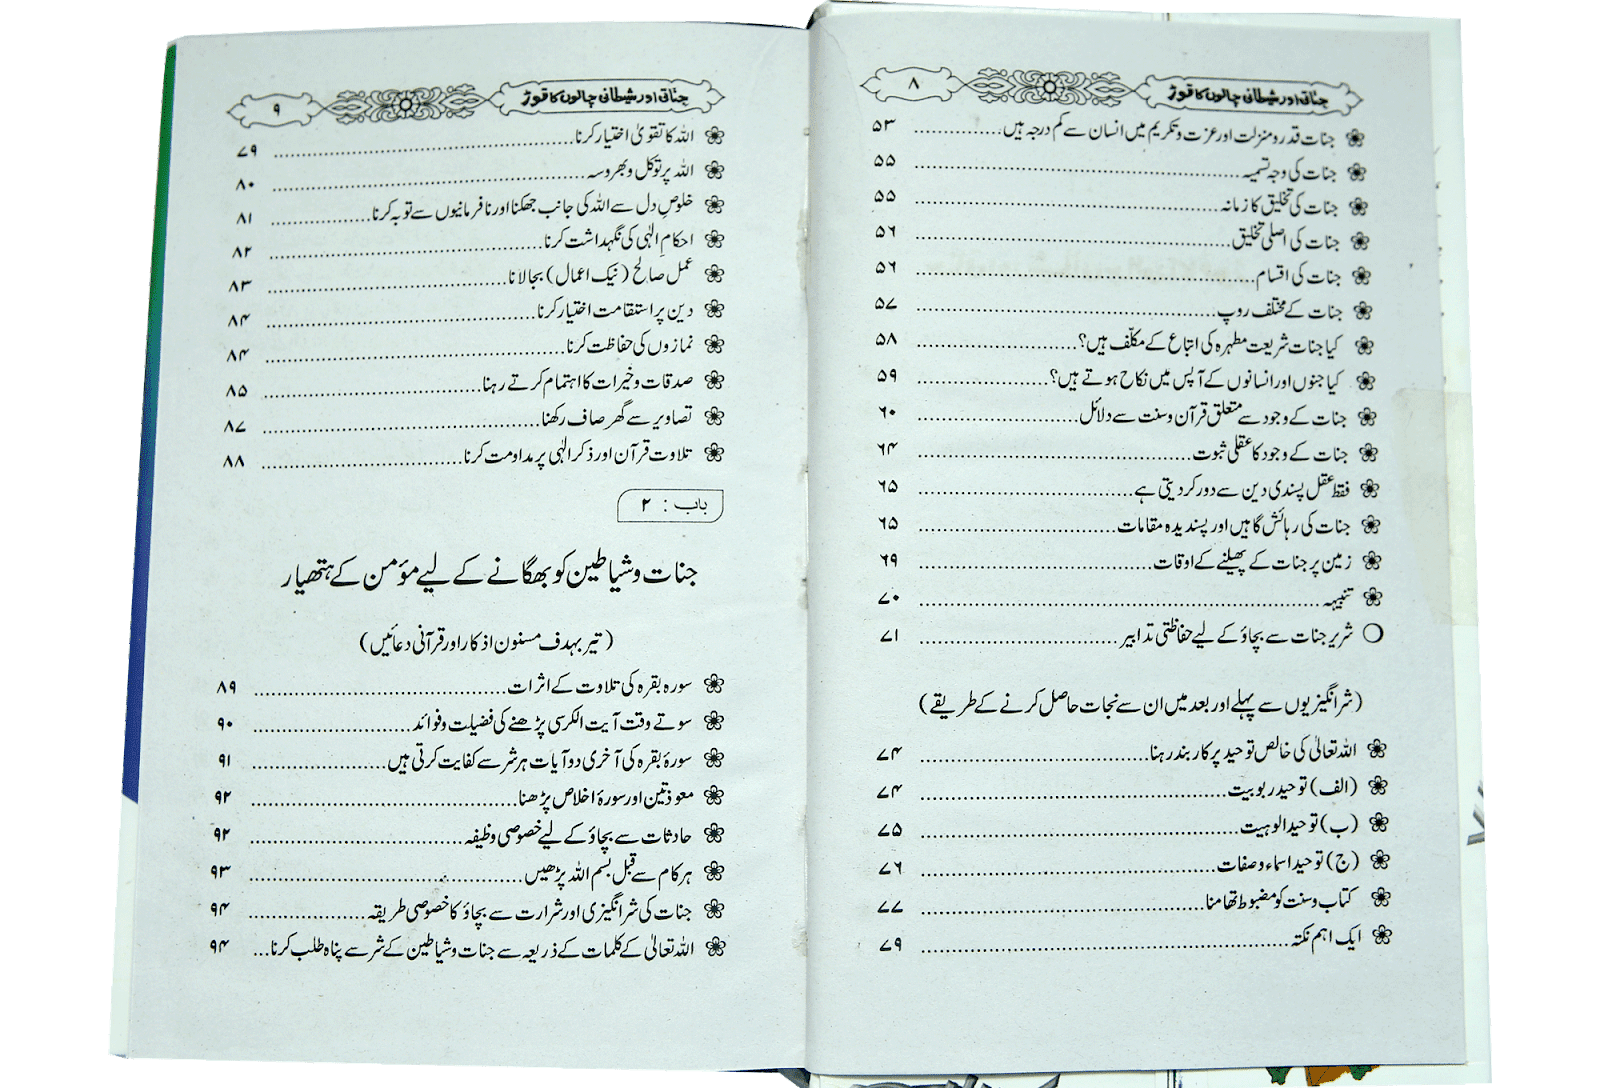 جناتی اور شیطانی چالوں کا توڑ ۸
جنات قدر و منزلت اور عزت و تکریم میں انسان سے کم درجہ ہیں ۵۳
جنات کی وجہ تسمیہ ۵۵
جنات کی تخلیق کا زمانہ ۵۵
جنات کی اصلی تخلیق ۵۶
جنات کی اقسام ۵۶
جنات کے مختلف روپ ۵۷
کیا جنات شریعت مطہرہ کی اتباع کے مکلّف ہیں؟ ۵۸
کیا جنوں اور انسانوں کے آپس میں نکاح ہوتے ہیں؟ ۵۹
جنات کے وجود سے متعلق قرآن و سنت سے دلائل ۶۰
جنات کے وجود کا عقلی ثبوت ۶۴
فقط عقل پسندی دین سے دور کر دیتی ہے ۶۵
جنات کی رہائش گاہیں اور پسندیدہ مقامات ۶۵
زمین پر جنات کے پھیلنے کے اوقات ۶۹
تنبیہہ ۷۰
شریر جنات سے بچاؤ کے لیے حفاظتی تدابیر ۷۱
(شر انگیزیوں سے پہلے اور بعد میں ان سے نجات حاصل کرنے کے طریقے)
اللہ تعالیٰ کی خالص توحید پر کار بند رہنا ۷۴
(الف) توحید ربوبیت ۷۴
(ب) توحید الوہیت ۷۵
(ج) توحید اسماء و صفات ۷۶
کتاب و سنت کو مضبوط تھامنا ۷۷
ایک اہم نکتہ ۷۹
جناتی اور شیطانی چالوں کا توڑ ۹
اللہ کا تقویٰ اختیار کرنا ۷۹
اللہ پر توکل و بھروسہ ۸۰
خلوصِ دل سے اللہ کی جانب جھکنا اور نافرمانیوں سے توبہ کرنا ۸۱
احکامِ الٰہی کی نگہداشت کرنا ۸۲
عمل صالح (نیک اعمال) بجا لانا ۸۳
دین پر استقامت اختیار کرنا ۸۴
نمازوں کی حفاظت کرنا ۸۴
صدقات و خیرات کا اہتمام کرتے رہنا ۸۵
تصاویر سے گھر صاف رکھنا ۸۷
تلاوت قرآن اور ذکر الٰہی پر مداومت کرنا ۸۸
باب : ۲
جنات و شیاطین کو بھگانے کے لیے مؤمن کے ہتھیار
(تیر بہدف مسنون اذکار اور قرآنی دعائیں)
سورہ بقرہ کی تلاوت کے اثرات ۸۹
سوتے وقت آیت الکرسی پڑھنے کی فضیلت و فوائد ۹۰
سورۂ بقرہ کی آخری دو آیات ہر شر سے کفایت کرتی ہیں ۹۱
معوذتین اور سورۂ اخلاص پڑھنا ۹۲
حادثات سے بچاؤ کے لیے خصوصی وظیفہ ۹۲
ہر کام سے قبل بسم اللہ پڑھیں ۹۳
جنات کی شر انگیزی اور شرارت سے بچاؤ کا خصوصی طریقہ ۹۴
اللہ تعالیٰ کے کلمات کے ذریعہ سے جنات و شیاطین کے شر سے پناہ طلب کرنا ۹۴